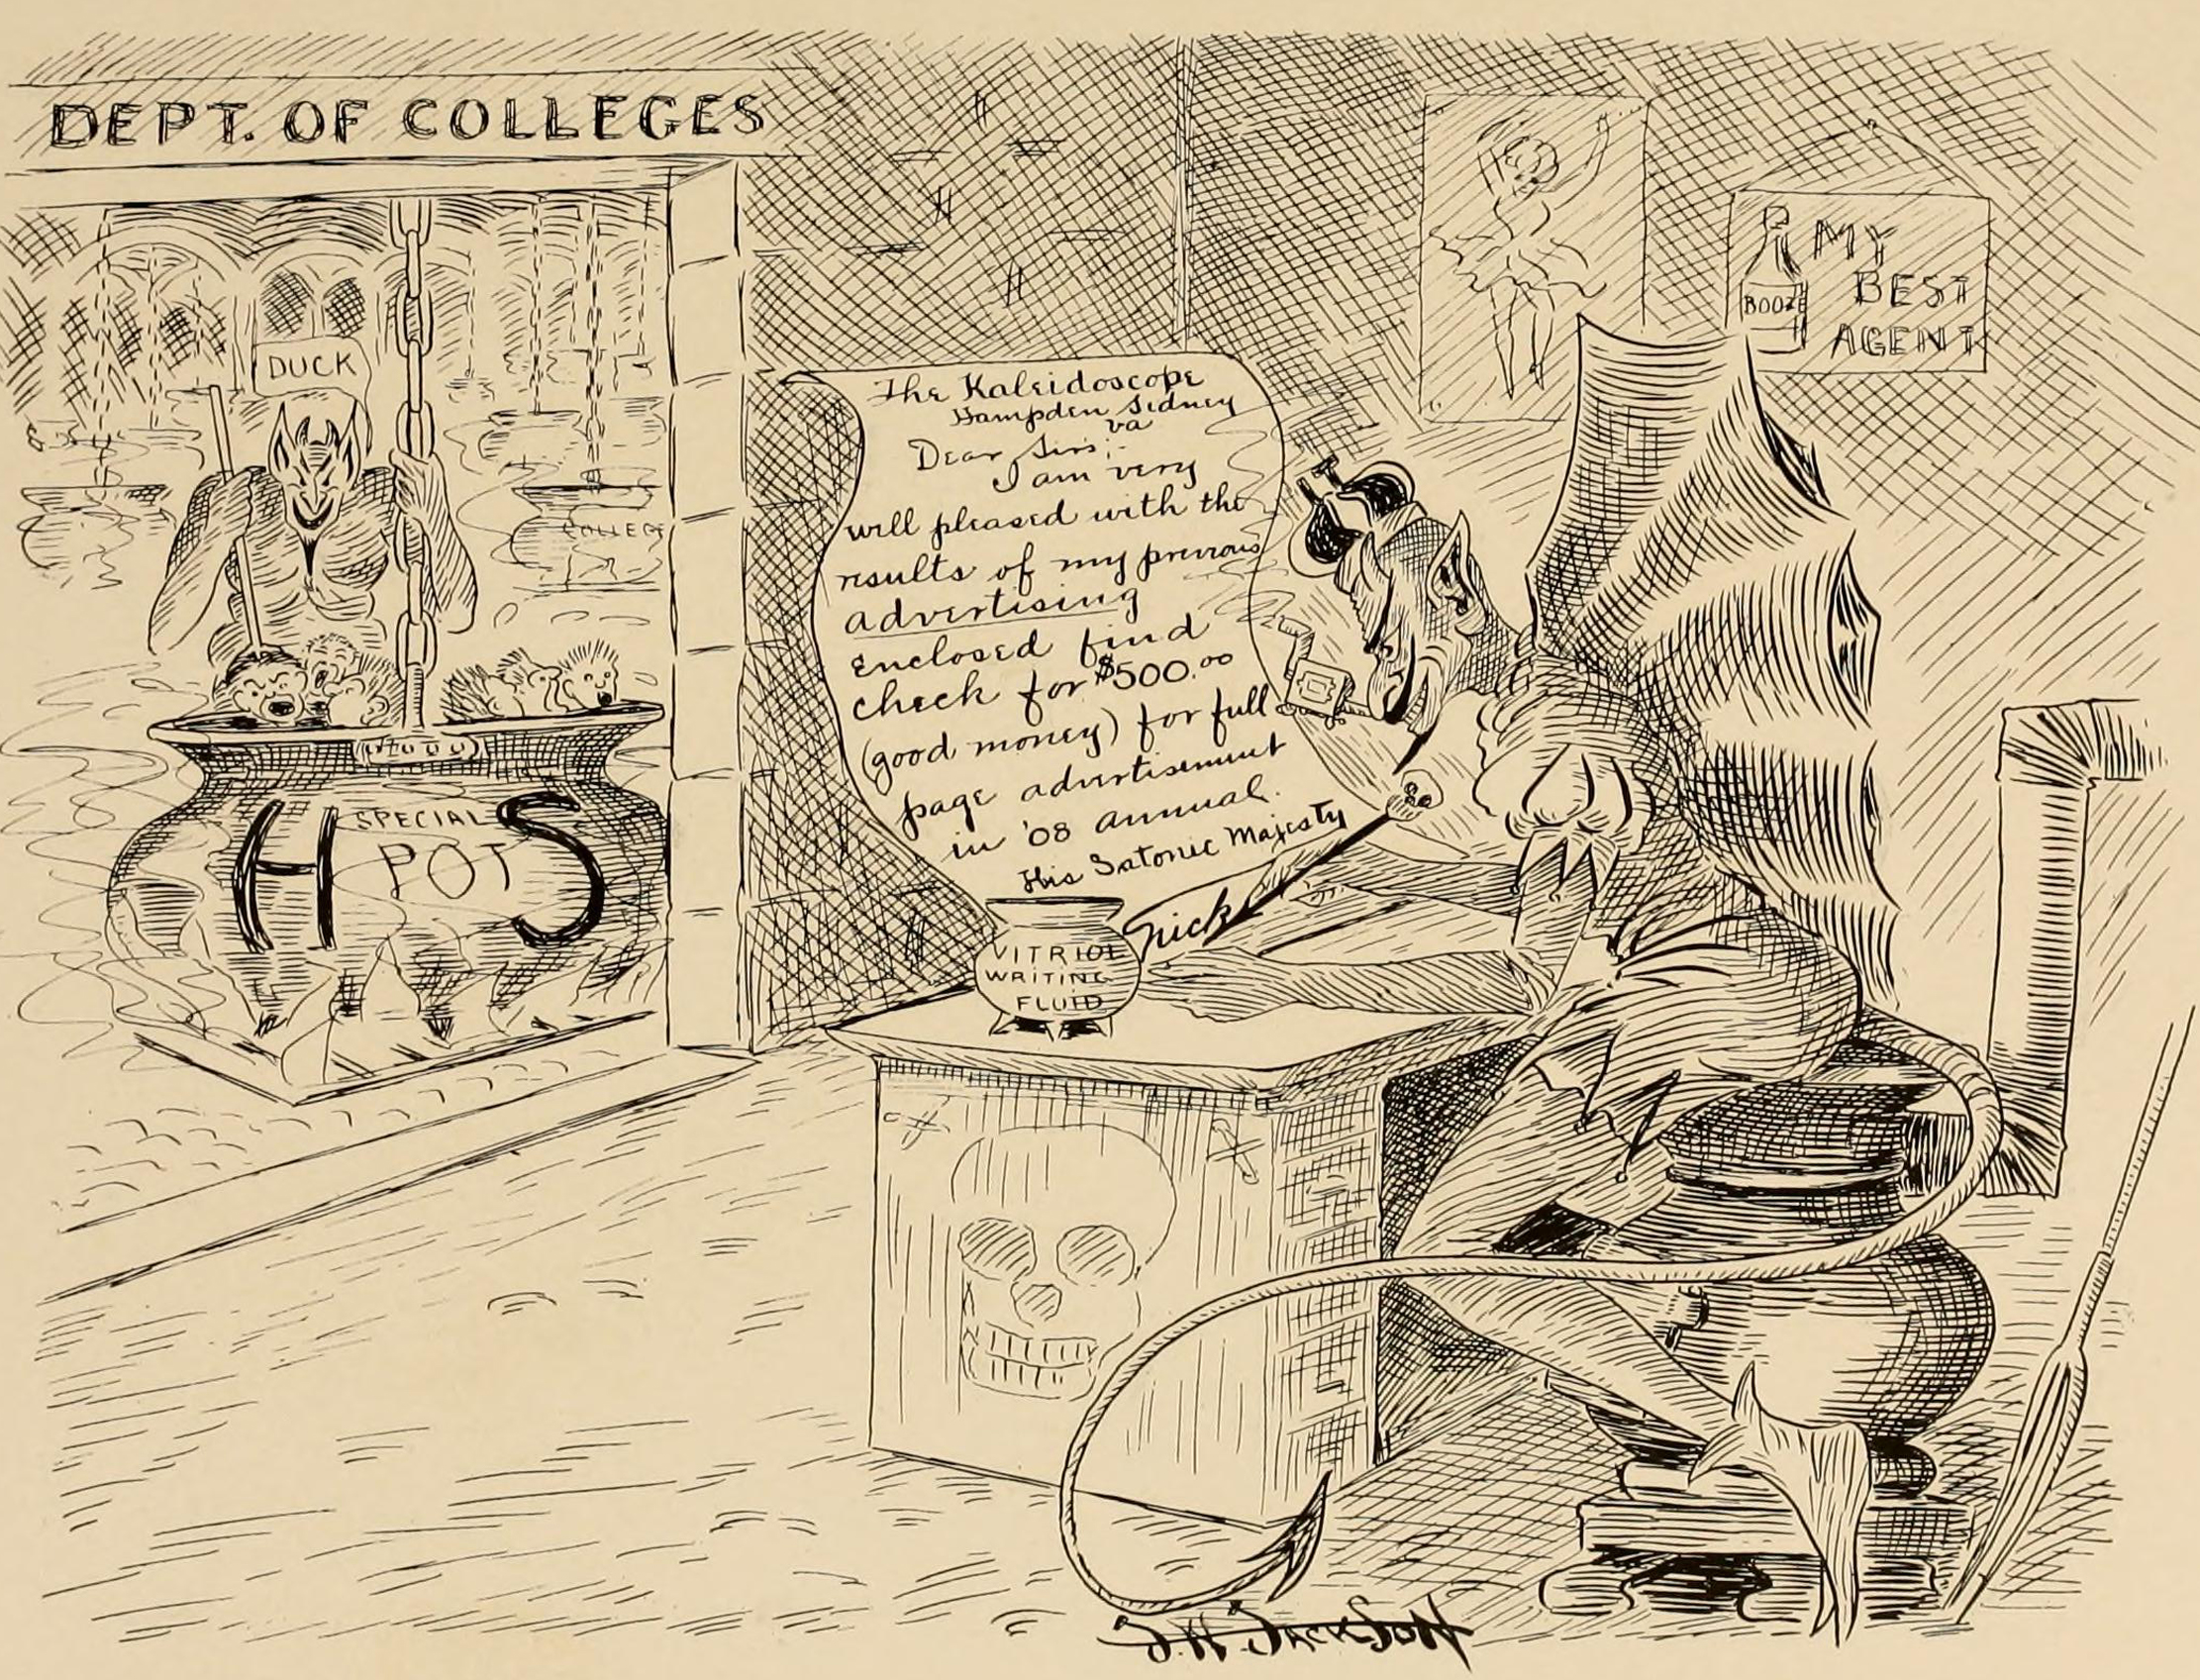 DEPT. OF COLLEGES
DUCK
COLLEGE
H SPECIAL POT S
The Kaleidoscope
Hampden Sidney
va
Dear Sirs:-
I am very
well pleased with the
results of my previous
advertising
enclosed find
check for $500.00
(good money) for full
page advertisement
in '08 annual.
His Satonic Majesty
Nick
VITRIOL
WRITING
FLUID
BOOZE
MY
BEST
AGENT
J.W. JACKSON